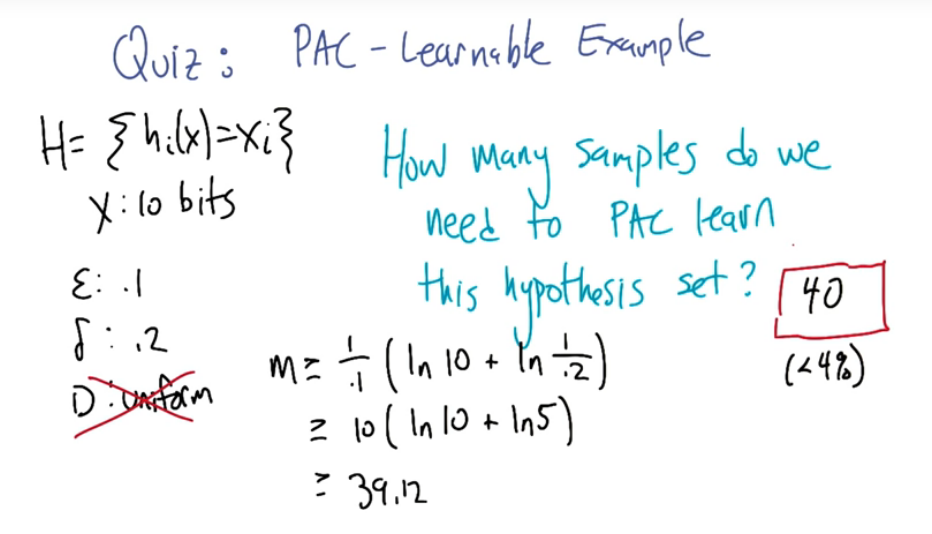 Quiz: PAC-Learnable Example
H= {hᵢ(x)=xᵢ}
X: 10 bits
How many samples do we
need to PAC learn
this hypothesis set?
40
(<4%)
ε: .1
δ: .2
D: uniform
m ≥ 1/.1 (ln 10 + ln 1/.2)
≥ 10 (ln 10 + ln 5)
≥ 39.12